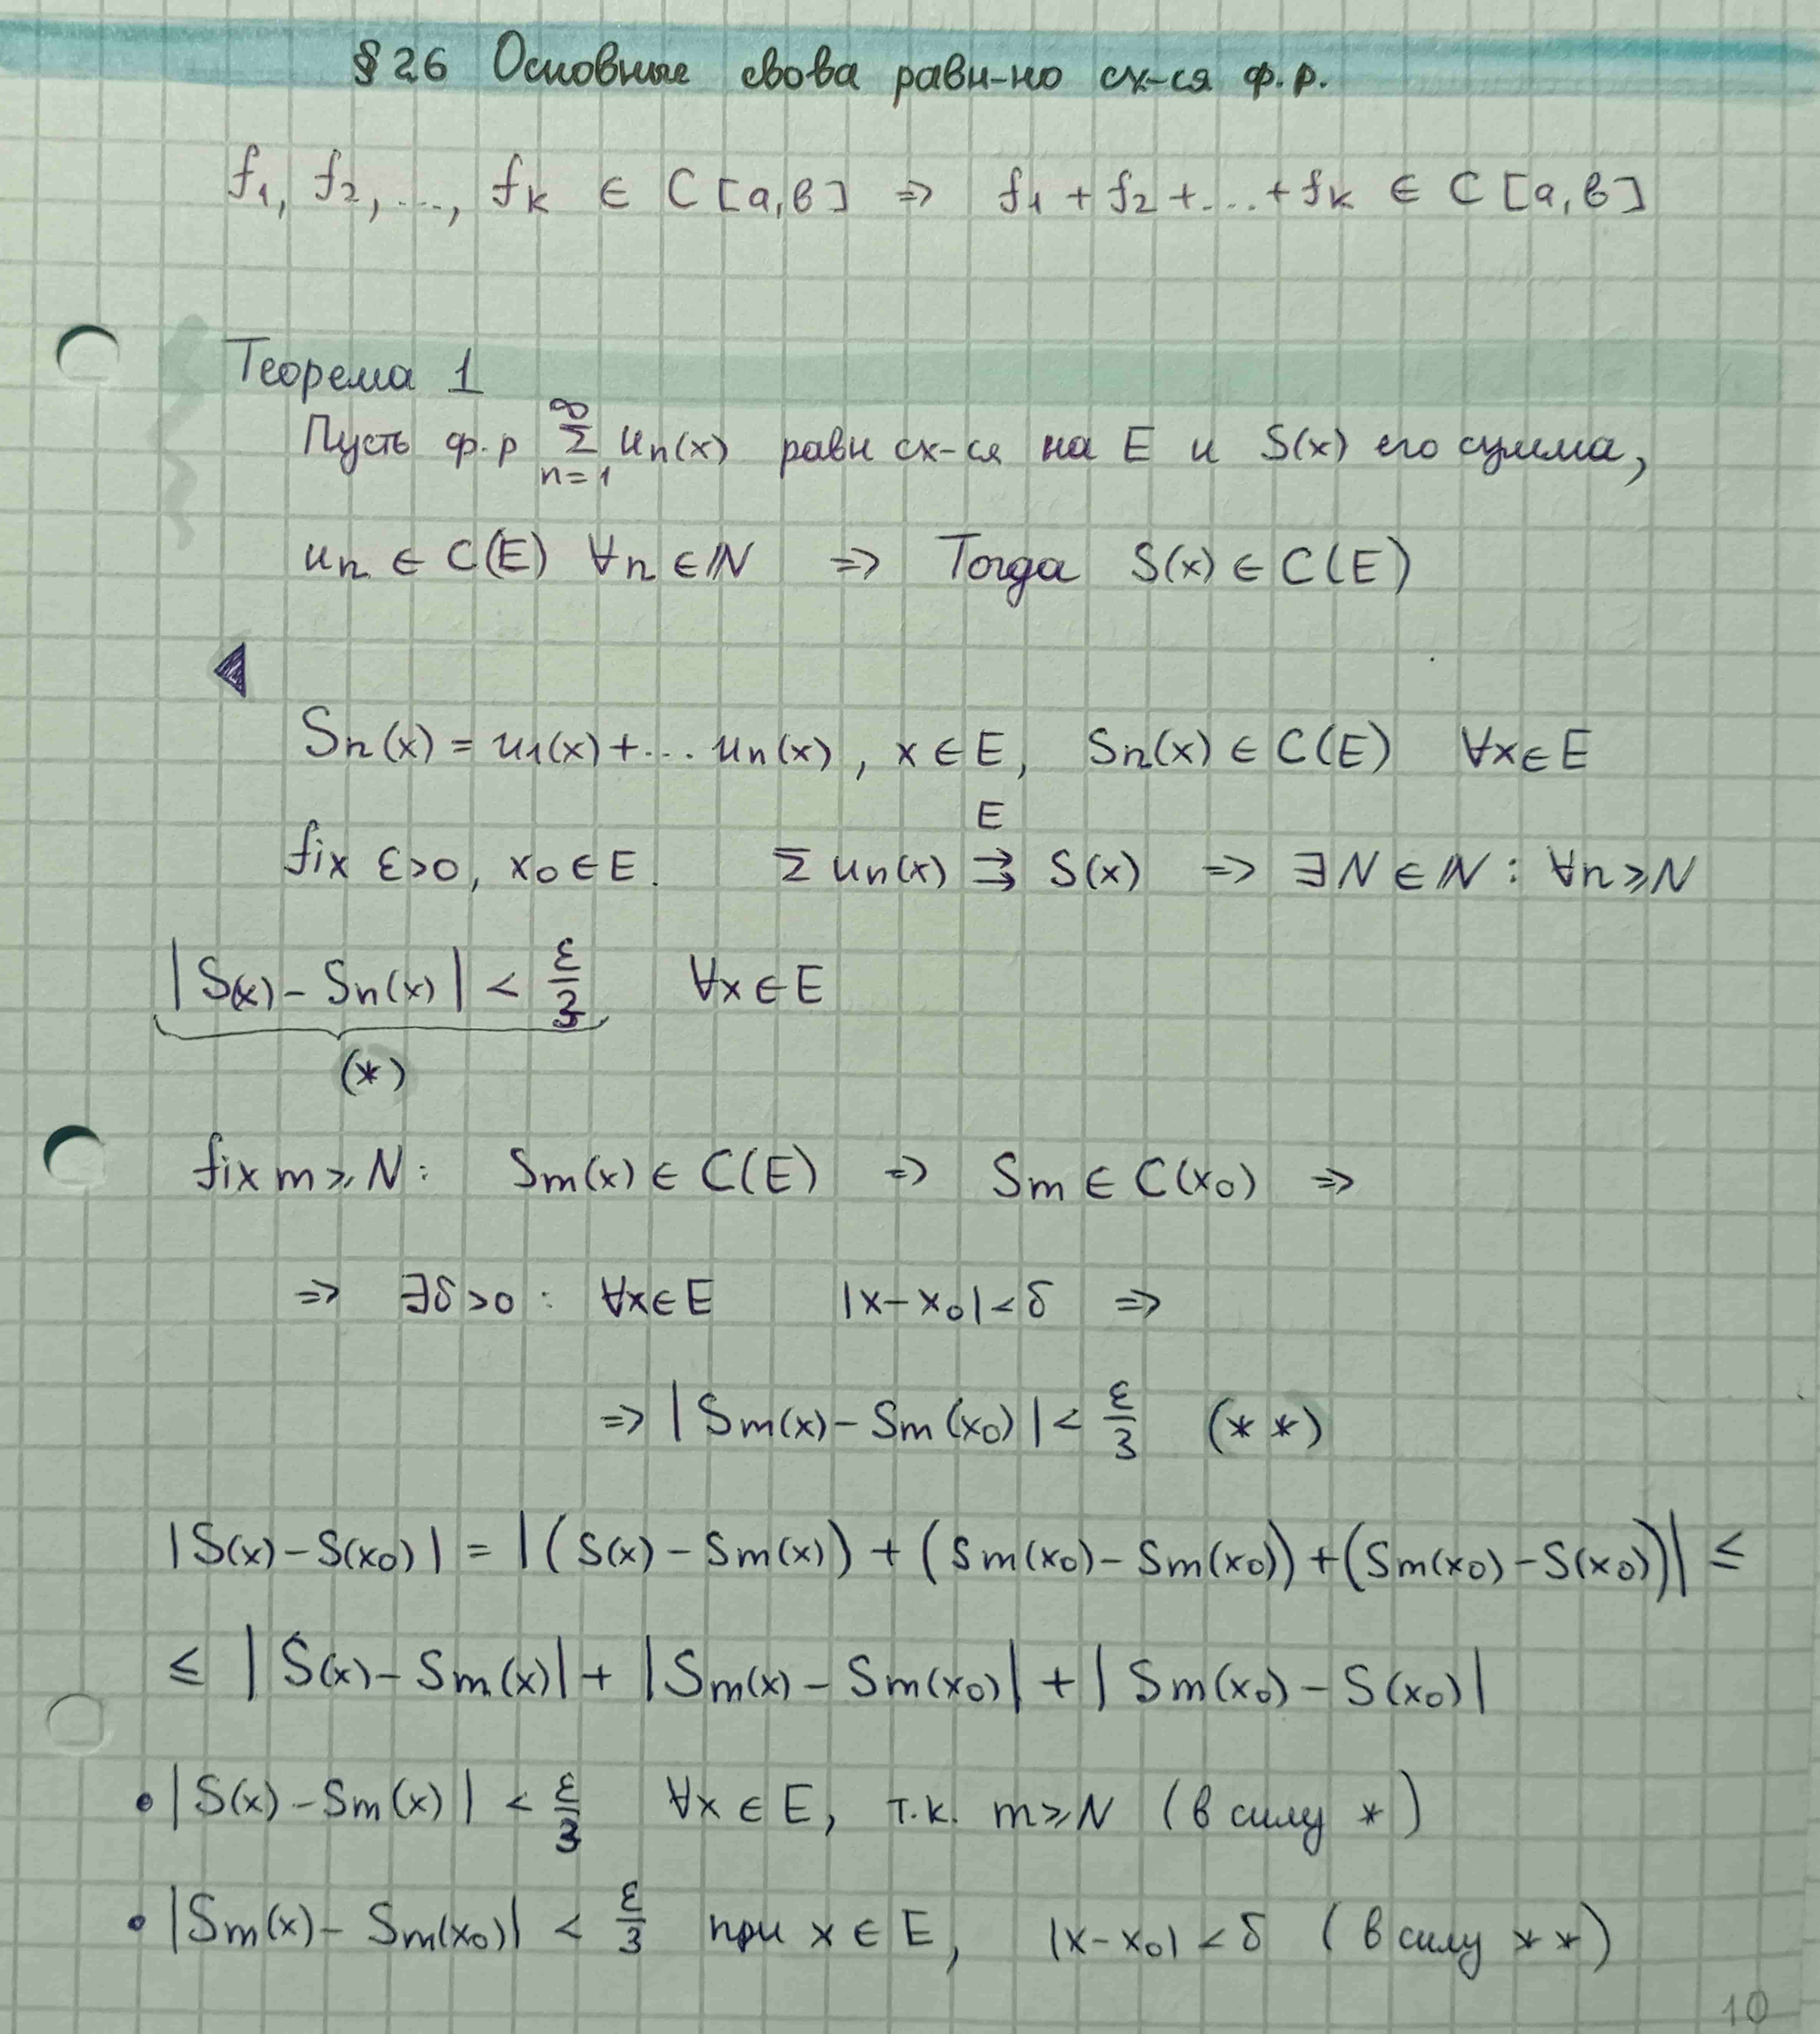 § 26 Основные свова равн-но сх-ся ф.р.
f₁, f₂, ..., fₖ ∈ C [a, b] ⇒ f₁ + f₂ + ... + fₖ ∈ C [a, b]
Теорема 1
Пусть ф.р ∑_{n=1}^{∞} uₙ(x) равн сх-ся на E и S(x) его сумма,
uₙ ∈ C(E) ∀n ∈ ℕ ⇒ Тогда S(x) ∈ C(E)
◀
Sₙ(x) = u₁(x) + ... uₙ(x), x ∈ E, Sₙ(x) ∈ C(E) ∀x ∈ E
fix ε > 0, x₀ ∈ E. ∑ uₙ(x) ⇉^{E} S(x) ⇒ ∃N ∈ ℕ : ∀n ⩾ N
|S(x) - Sₙ(x)| < ε/3 ∀x ∈ E
(*)
fix m ⩾ N: Sₘ(x) ∈ C(E) ⇒ Sₘ ∈ C(x₀) ⇒
⇒ ∃δ > 0 : ∀x ∈ E |x - x₀| < δ ⇒
⇒ |Sₘ(x) - Sₘ(x₀)| < ε/3 (* *)
|S(x) - S(x₀)| = |(S(x) - Sₘ(x)) + (Sₘ(x₀) - Sₘ(x₀)) + (Sₘ(x₀) - S(x₀))| ≤
≤ |S(x) - Sₘ(x)| + |Sₘ(x) - Sₘ(x₀)| + |Sₘ(x₀) - S(x₀)|
• |S(x) - Sₘ(x)| < ε/3 ∀x ∈ E, т.к. m ⩾ N (в силу *)
• |Sₘ(x) - Sₘ(x₀)| < ε/3 при x ∈ E, |x - x₀| < δ (в силу * *)
10